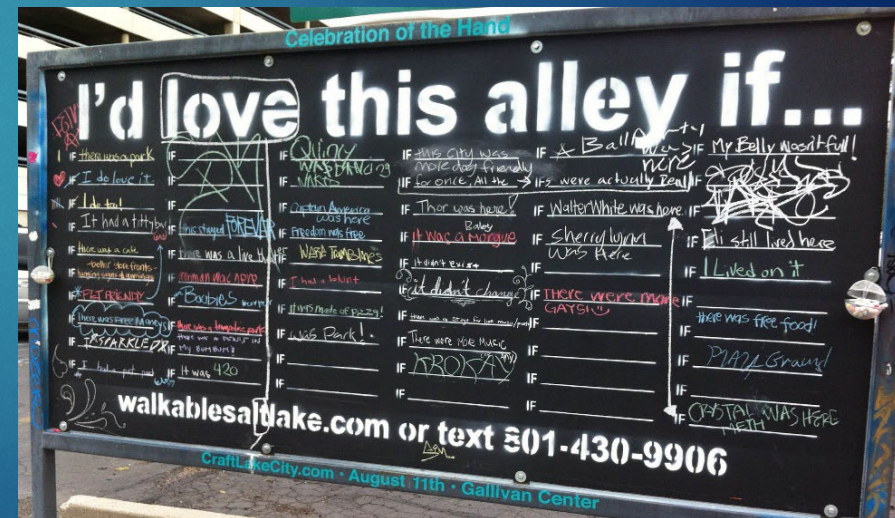 Celebration of the Hand
I'd love this alley if...
IF there was a park
IF I do love it.
IF I do too!
IF It had a titty bar
IF there was a cafe
better store fronts
IF PET FRIENDLY
IF there was free money
IF IT SPARKLED
IF I had a
IF
IF
IF
IF this stayed FOREVER
IF there was a live
IF
IF Boobies
IF there was a trampoline park
there was a in
IF MY BUMBUM
IF It was 420
IF Quincy
WAS
IF
IF Captain America
was here
IF Freedom was free
IF
IF I had a blunt
IF it was made of pizza!
IF was Park!
IF
IF
IF this city was
more dog friendly
IF for once, All the → IFs were actually Real
IF Thor was here!
IF It was a Morgue
IF it didn't exist
IF it didn't change
IF there was a stage for live music
IF There were More Music
IF KROKAY
IF
IF
IF Walter White was here.
IF Sherry Lynn
Was Here
IF
IF THERE WERE MORE
GAYS!
IF
IF
IF
IF
IF My Belly Wasn't full!
IF
IF
IF Eli still lived here
IF I Lived on it
IF
IF there was free food!
IF PLAY Ground
IF
IF CRYSTAL WAS HERE
METH
walkablesaltlake.com or text 801-430-9906
CraftLakeCity.com • August 11th • Gallivan Center